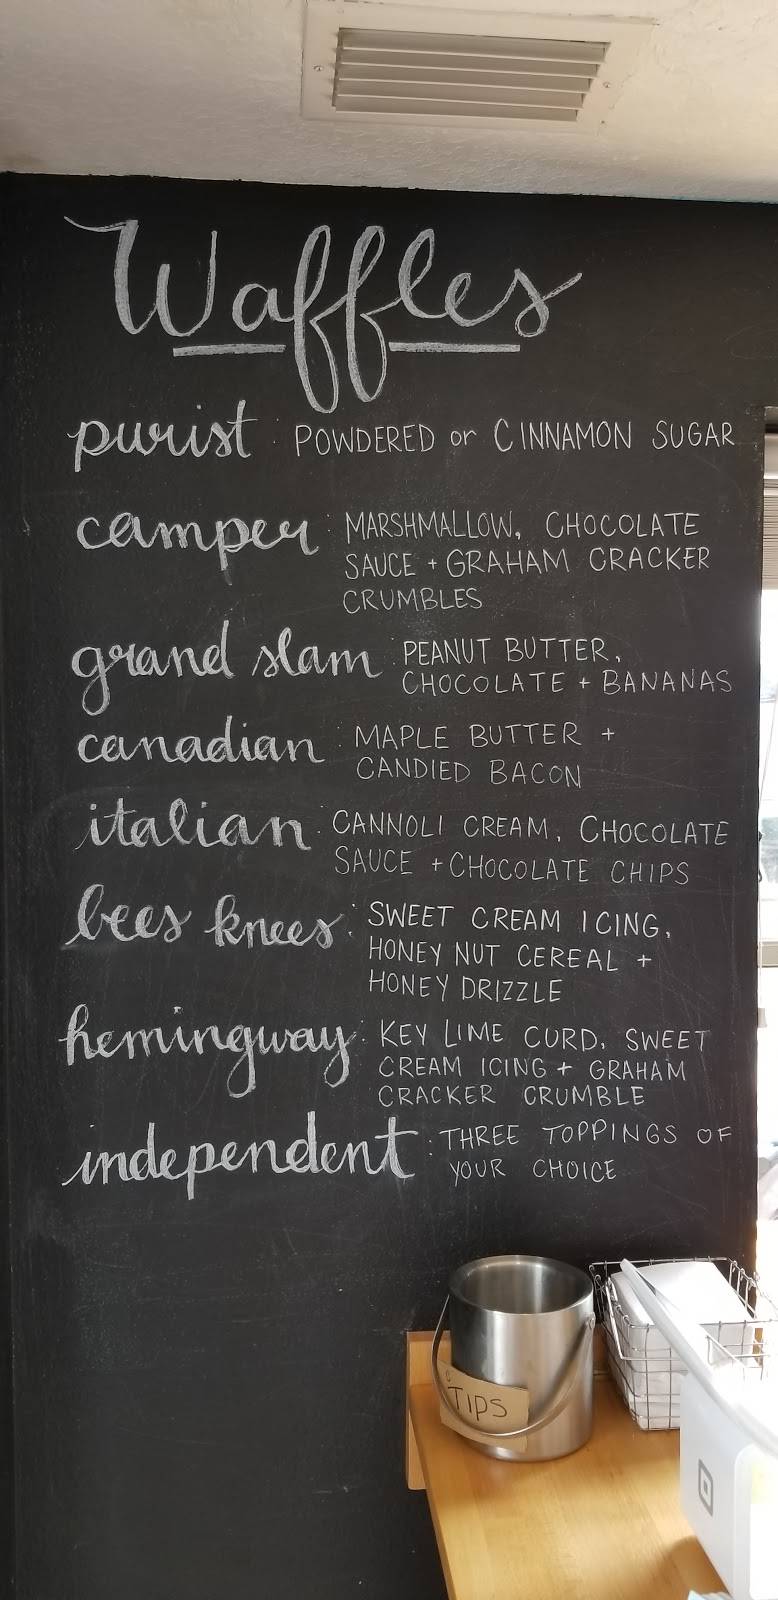 Waffles
purist : POWDERED or CINNAMON SUGAR
camper : MARSHMALLOW, CHOCOLATE
SAUCE + GRAHAM CRACKER
CRUMBLES
grand slam : PEANUT BUTTER,
CHOCOLATE + BANANAS
canadian : MAPLE BUTTER +
CANDIED BACON
italian : CANNOLI CREAM, CHOCOLATE
SAUCE + CHOCOLATE CHIPS
bees knees : SWEET CREAM ICING,
HONEY NUT CEREAL +
HONEY DRIZZLE
hemingway : KEY LIME CURD, SWEET
CREAM ICING + GRAHAM
CRACKER CRUMBLE
independent : THREE TOPPINGS OF
YOUR CHOICE
TIPS